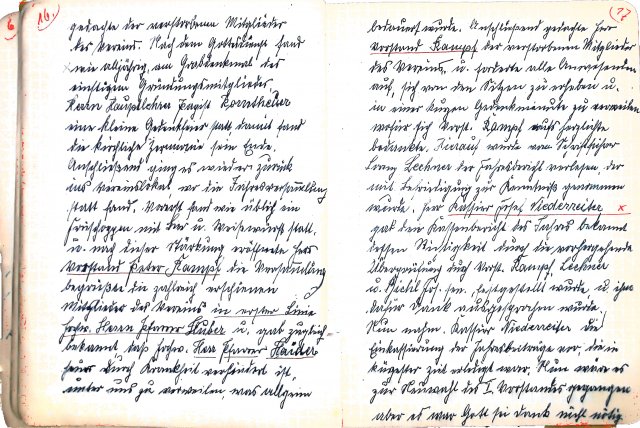 16.
gedachte der verstorbenen Mitglieder
des Vereins. Nach dem Gottesdienst fand
wie alljährig am Grabdenkmal des
einstigen Gründungsmitgliedes
Herrn Hauptlehrer Papst Kornthe
eine kleine Gedenkfeier statt, damit fand
die kirchliche Zeremonie sein Ende.
Anschließend ging es wieder zurück
ins Vereinslokal, wo die Jahresversammlung
statt fand. Vorerst fand wie üblich ein
Frühschoppen mit Bier u. Weißwürst statt.
u. nach dieser Stärkung eröffnete Herr
Vorstand Peter Kampf die Versammlung
begrüßte die zahlreich erschienen
Mitglieder des Vereins in erster Linie
hochw. Herrn Pfarrer Huber u. gab zugleich
bekannt daß hochw. Herr Pfarrer Haider
heuer durch Krankheit verhindert ist,
unter uns zu verweilen was allgem
17
bedauert wurde. Anschließend gedachte Herr
Vorstand Kampf der verstorbenen Mitglieder
des Vereins, u. forderte alle Anwesenden
auf, sich von den Sitzen zu erheben u.
in einer kurzen Gedenkminute zu verweilen
wofür sich Vorst. Kampf aufs herzlichste
bedankte. Hierauf wurde von Schriftführer
Lechner der Jahresbericht verlesen, der
mit Befriedigung zur Kenntniß genommen
wurde. Herr Kassier Josef Niederreiter x
gab den Kassenbericht des Jahres bekannt
dessen Richtigkeit durch die vorhergehende
Überprüfung durch Vorst. Kampf, Lechner
u. Bichl Jos. sen. festgestellt wurde u. ihm
dafür Dank ausgesprochen wurde.
Nun nahm Kassier Niederreiter die
Einkassierung der Jahresbeiträge vor, die in
kürzester Zeit erledigt war. Nun wäre es
zur Neuwahl des I. Vorstandes gegangen
aber es war Gott sei dank nicht nötig.